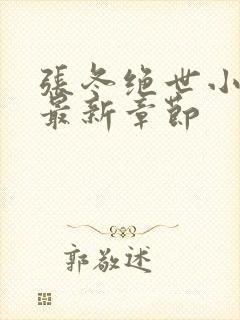 張冬绝世小
最新章節
郭敬述